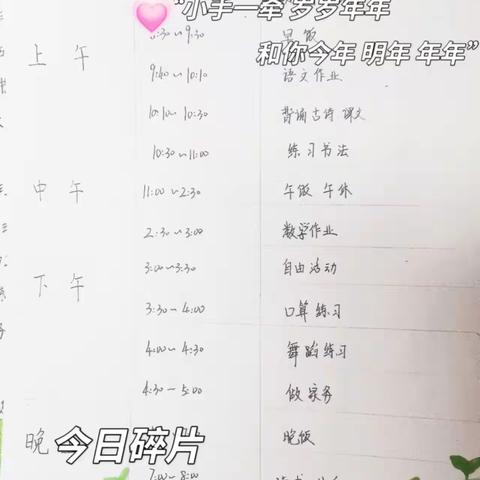 “小手一牵 岁岁年年
和你今年 明年 年年”
8:30~9:30 早饭
上午 9:40~10:10 语文作业
10:10~10:30 背诵古诗 课文
10:30~11:00 练习书法
中午 11:00~2:30 午饭 午休
2:30~3:00 数学作业
下午 3:00~3:30 自由活动
3:30~4:00 口算练习
4:00~4:30 舞蹈练习
4:30~5:00 做家务
晚 晚饭
今日碎片
7:00~8:00